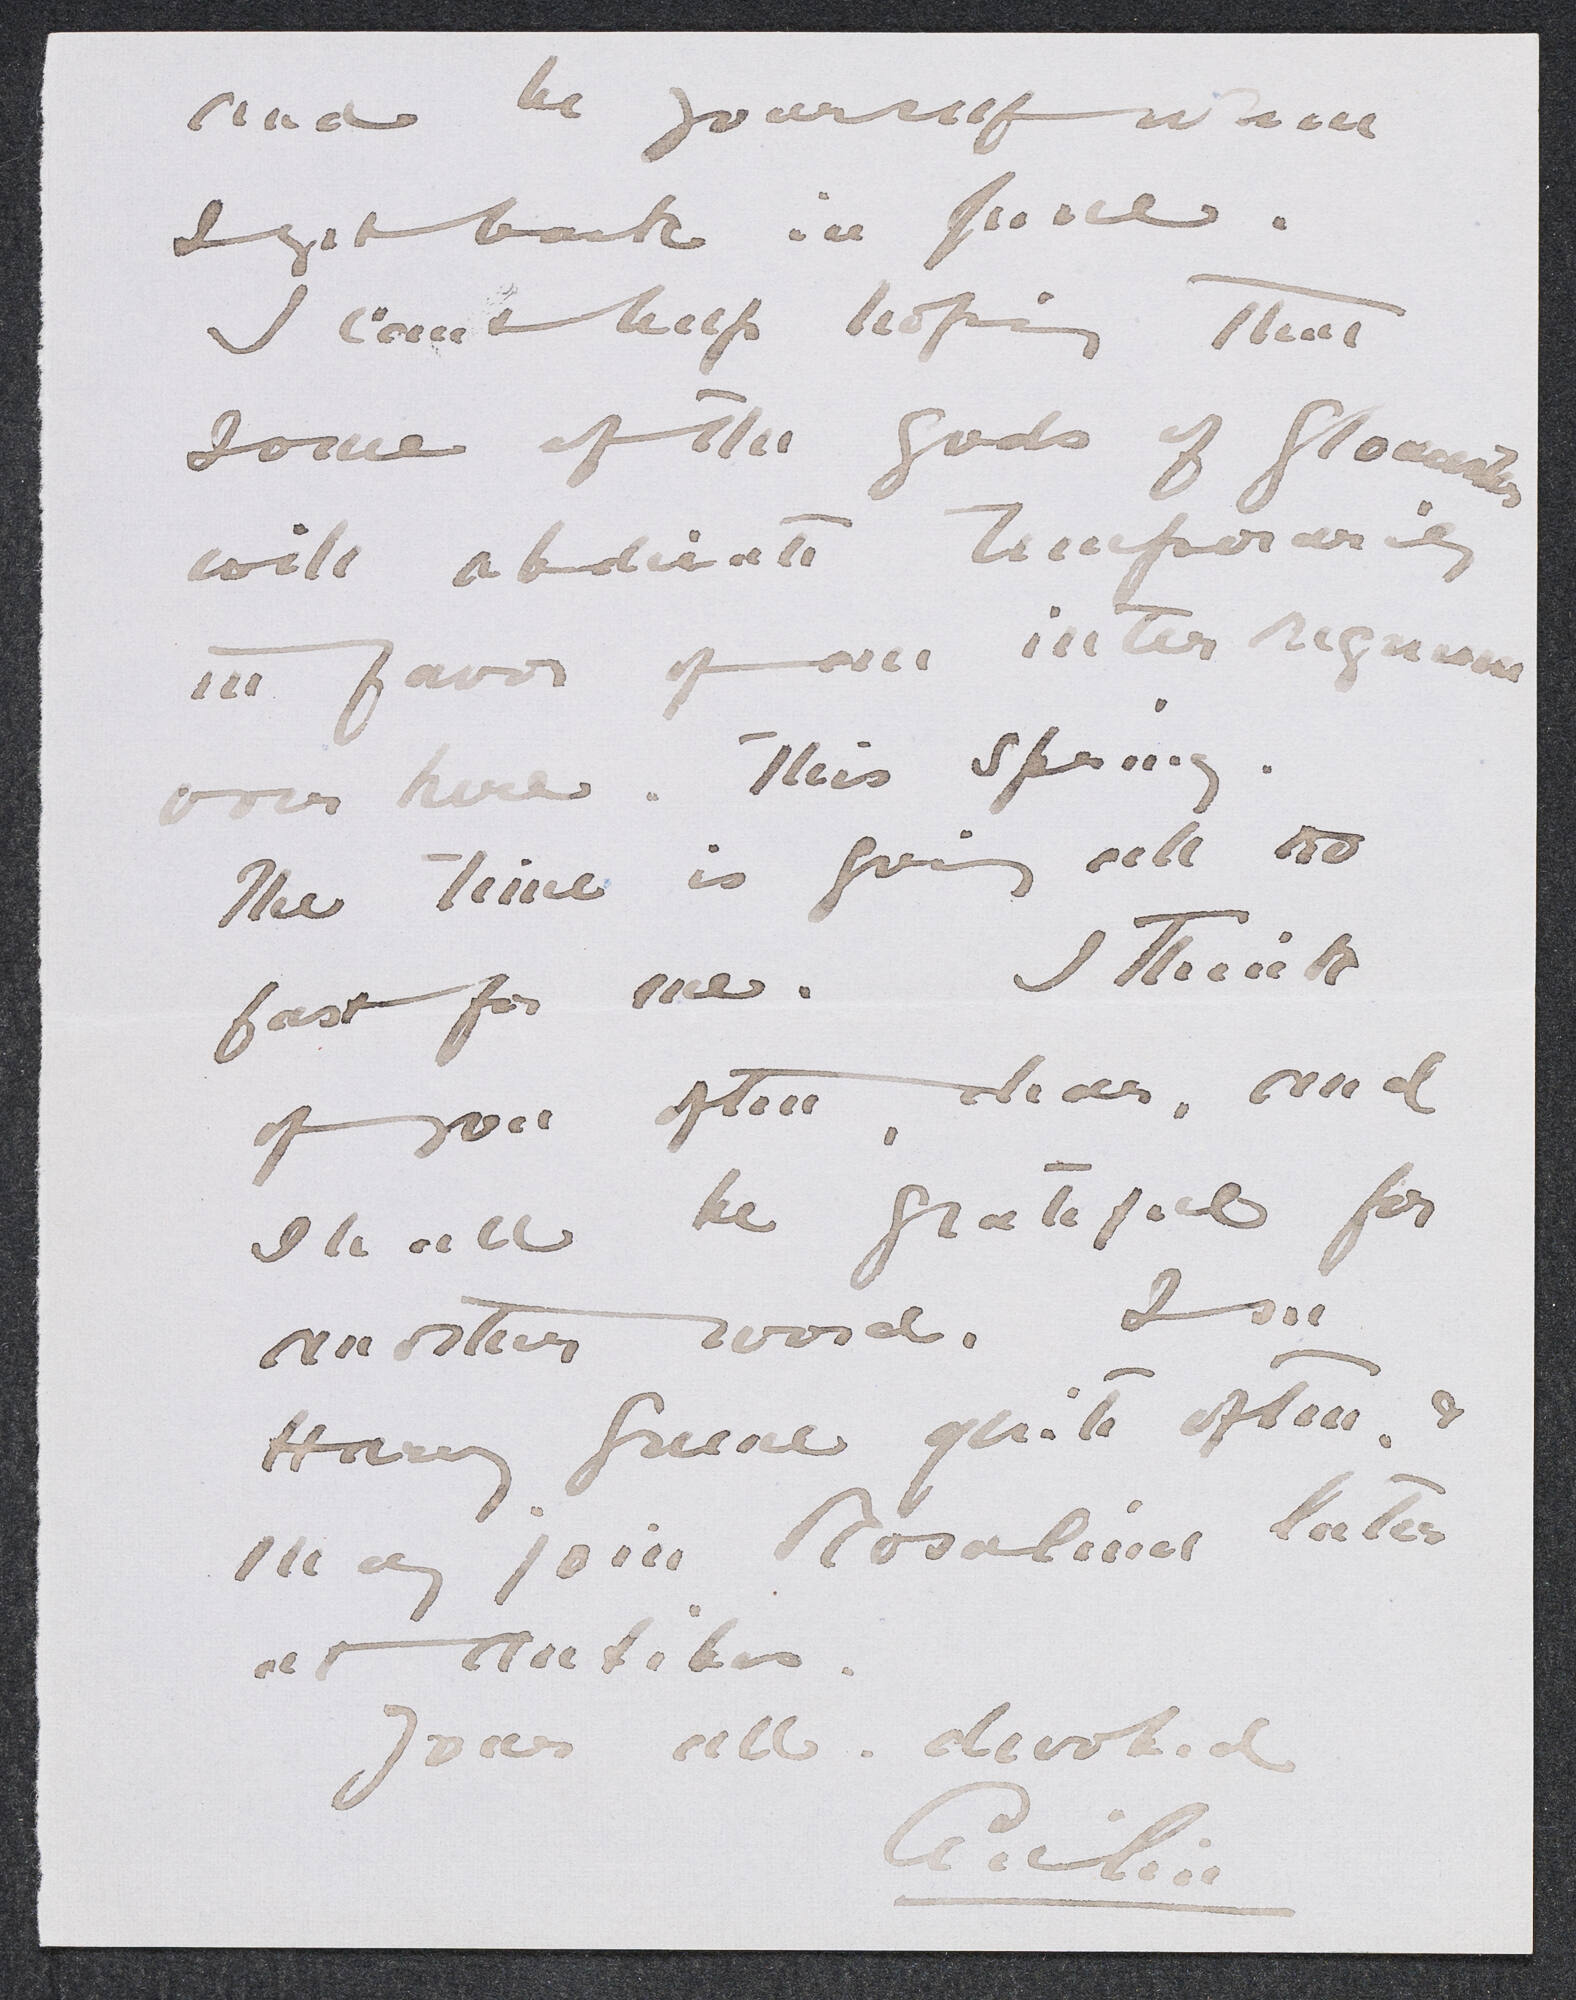 and be yourself when
I get back in June.
I can't help hoping that
some of the gods of Gloucester
will abdicate temporarily
in favor of an inter regnum
over here. This spring.
The time is going all too
fast for me. I think
of you often, dear, and
shall be grateful for
another word. I see
Harry Greene quite often, &
may join Rosalina later
at Antibes.
Yours all. devoted
Cecilia